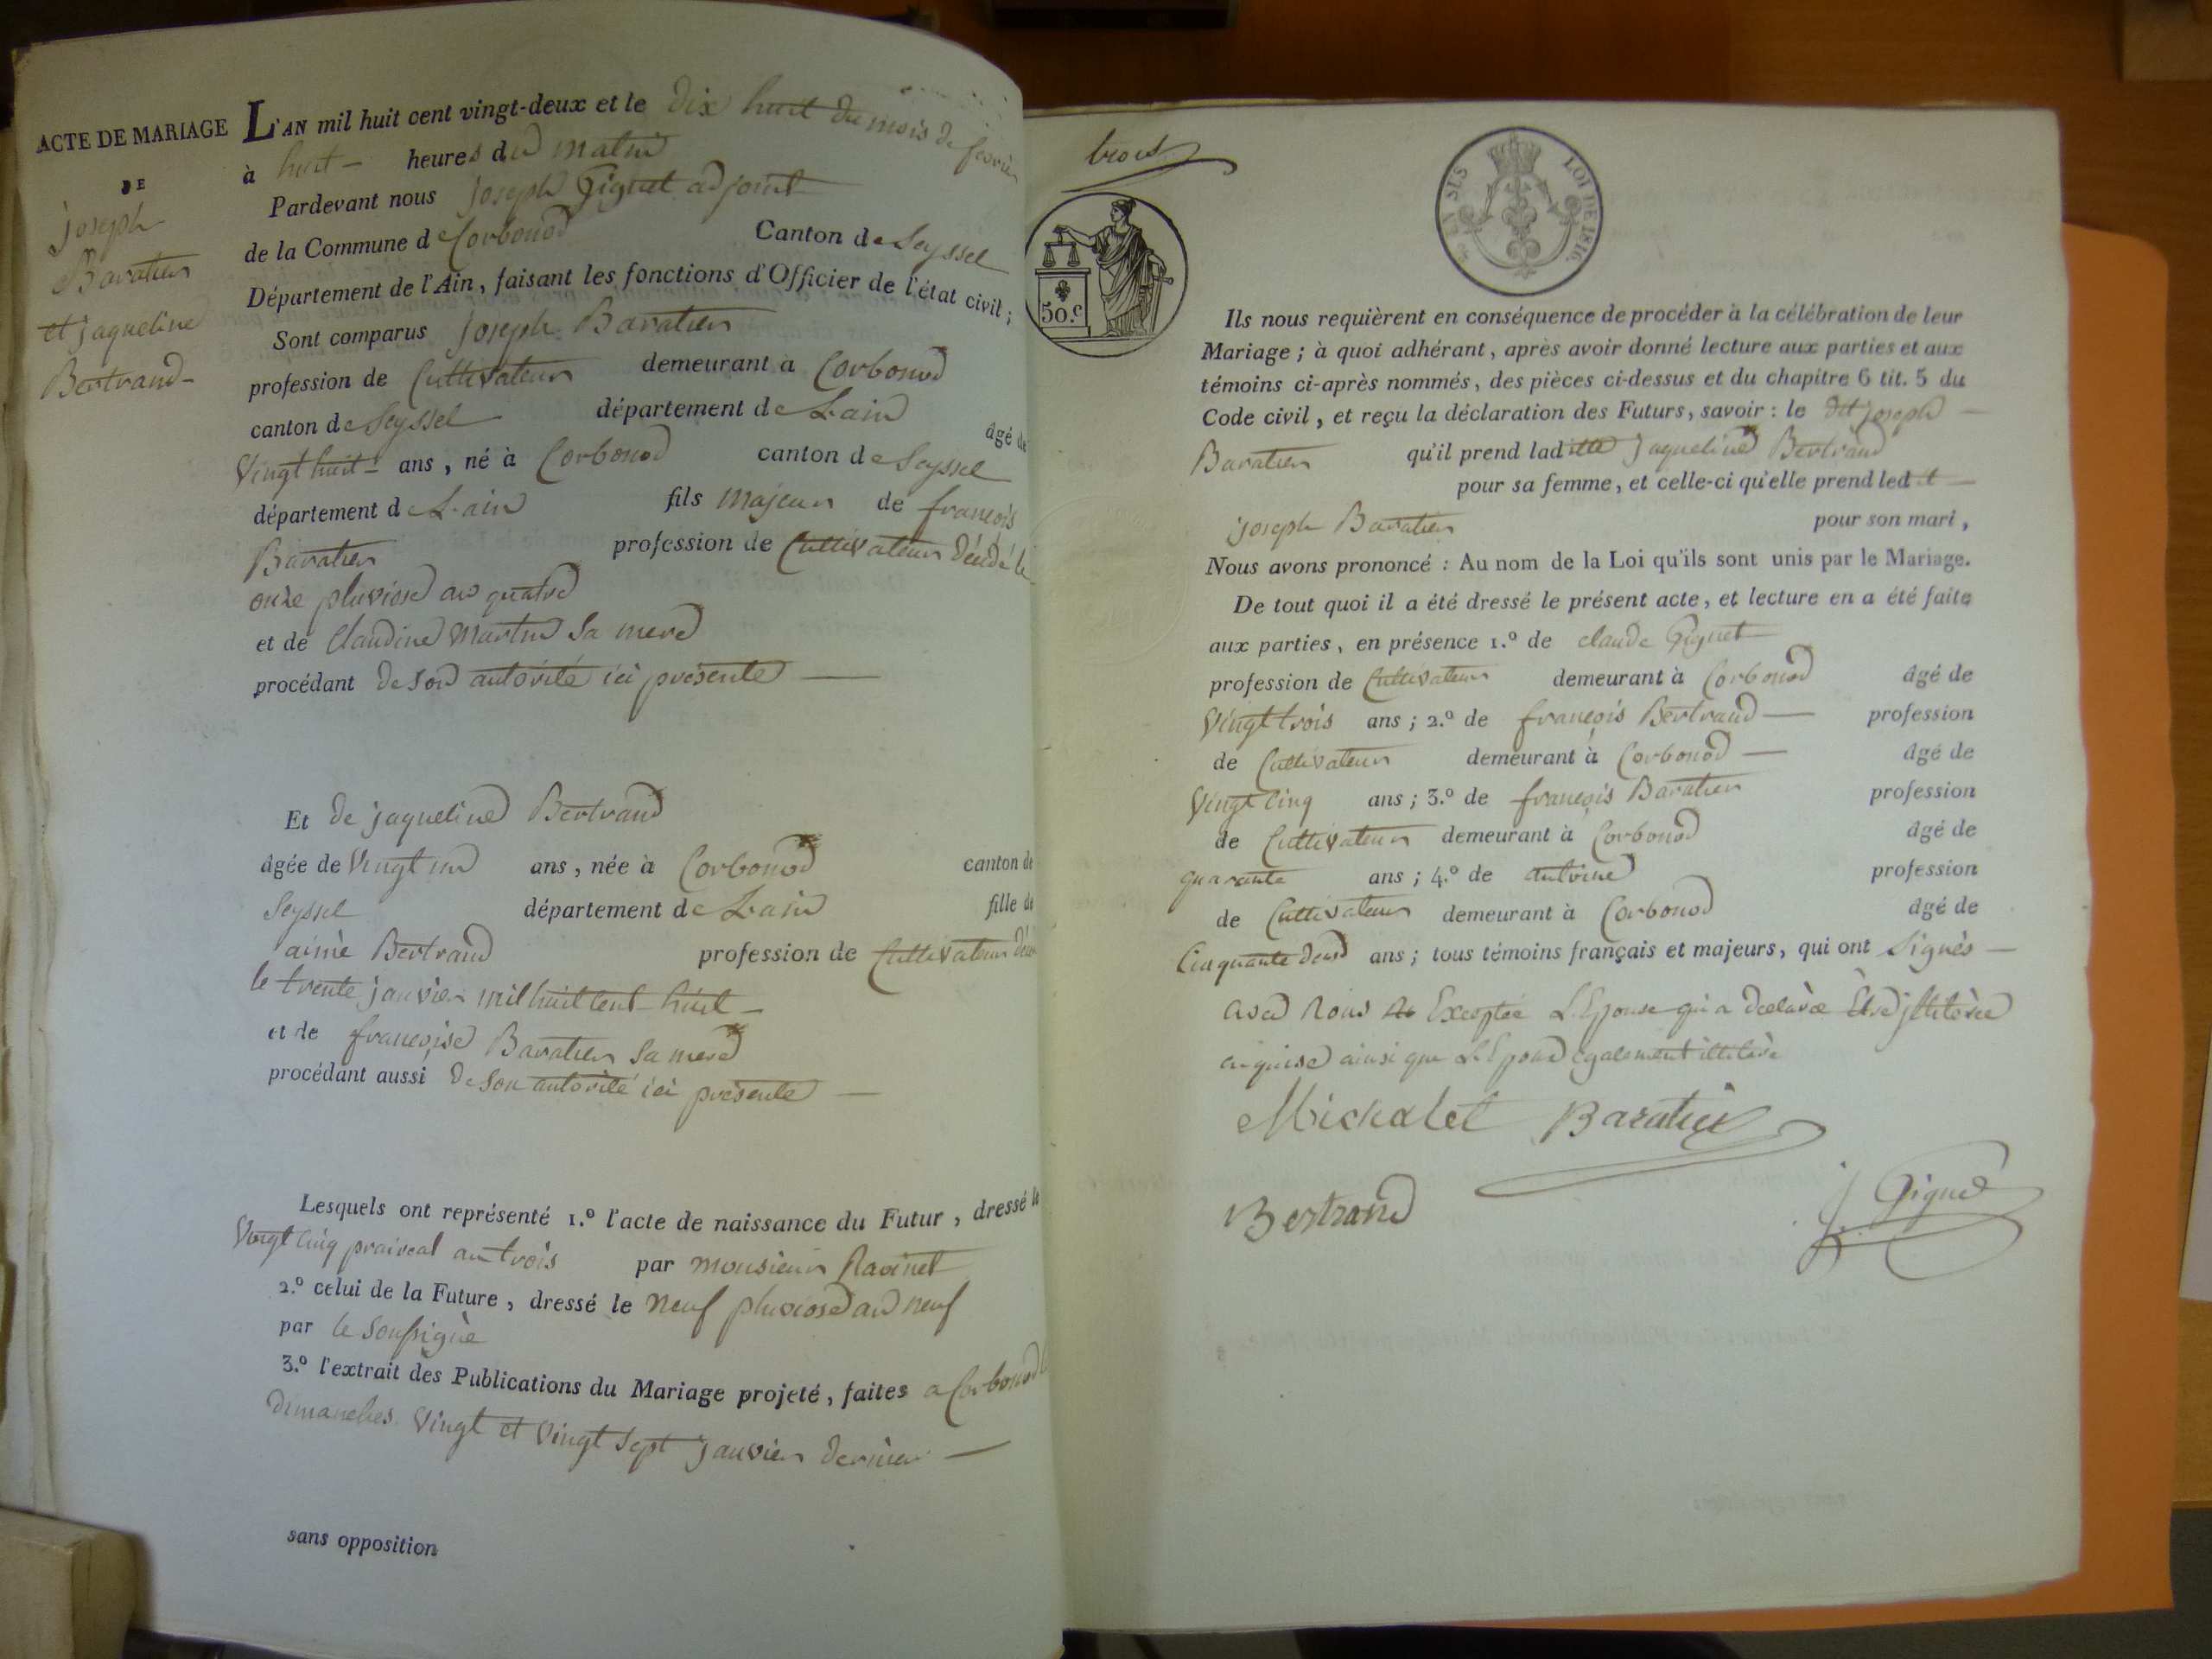 ACTE DE MARIAGE
DE
joseph
Baratier
et jaqueline
Bertrand
L'AN mil huit cent vingt-deux et le dix huit du mois de fevrier
à huit heures du matin
Pardevant nous joseph Gignet adjoint
de la Commune de Corbonod Canton de Seyssel
Département de l'Ain, faisant les fonctions d'Officier de l'état civil ;
Sont comparus joseph Baratier
profession de Cultivateur demeurant à Corbonod
canton de Seyssel département de L'ain âgé de
Vingt huit ans , né à Corbonod canton de Seyssel
département de L'ain fils majeur de françois
Baratier profession de Cultivateur décédé le
onze pluviose an quatre
et de Claudine Martin sa mere
procédant de son autorité ici présente
Et de jaqueline Bertrand
âgée de Vingt un ans , née à Corbonod canton de
Seyssel département de L'ain fille de
aimé Bertrand profession de Cultivateur
le trente janvier mil huit cent huit
et de françoise Baratier sa mere
procédant aussi de son autorité ici présente
Lesquels ont représenté 1.º l'acte de naissance du Futur , dressé le
Vingt cinq praireal an trois par monsieur Ravinet
2.º celui de la Future , dressé le neuf pluviose an neuf
par le soussigné
3.º l'extrait des Publications du Mariage projeté , faites a Corbonod
dimanches Vingt et Vingt sept janvier dernier
sans opposition
trois
50.c
LOI DE 1816.
Ils nous requièrent en conséquence de procéder à la célébration de leur
Mariage ; à quoi adhérant , après avoir donné lecture aux parties et aux
témoins ci-après nommés , des pièces ci-dessus et du chapitre 6 tit. 5 du
Code civil , et reçu la déclaration des Futurs , savoir : le dit joseph
Baratier qu'il prend ladite jaqueline Bertrand
pour sa femme , et celle-ci qu'elle prend ledit
joseph Baratier pour son mari ,
Nous avons prononcé : Au nom de la Loi qu'ils sont unis par le Mariage.
De tout quoi il a été dressé le présent acte , et lecture en a été faite
aux parties , en présence 1.º de claude Gignet
profession de Cultivateur demeurant à Corbonod âgé de
Vingt trois ans ; 2.º de françois Bertrand profession
de Cultivateur demeurant à Corbonod âgé de
Vingt Cinq ans ; 3.º de françois Baratier profession
de Cultivateur demeurant à Corbonod âgé de
quarante ans ; 4.º de antoine profession
de Cultivateur demeurant à Corbonod âgé de
Cinquante deux ans ; tous témoins français et majeurs , qui ont Signés
avec Nous Exceptée L'Epouse qui a declarée Etre jlliterée
ainsi que L'Epoux également illiteré
Michalet Baratier
Bertrand
J. Gignet